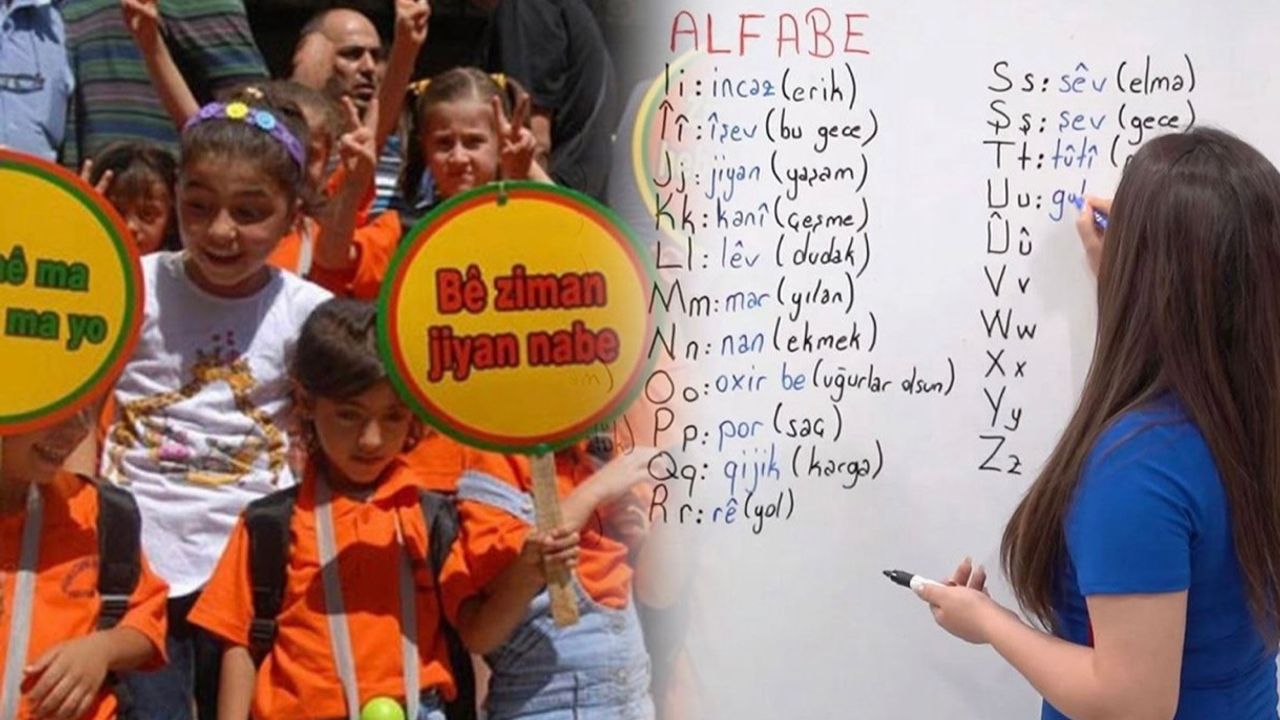 ê ma
ma yo
Bê ziman
jiyan nabe
ALFABE
Ii: incaz (erik)
Îî: îşev (bu gece)
Jj: jiyan (yaşam)
Kk: kanî (çeşme)
Ll: lêv (dudak)
Mm: mar (yılan)
Nn: nan (ekmek)
Oo: oxir be (uğurlar olsun)
Pp: por (saç)
Qq: qijik (karga)
Rr: rê (yol)
Ss: sêv (elma)
Şş: şev (gece)
Tt: tûtî (
Uu: gul
Ûû
Vv
Ww
Xx
Yy
Zz